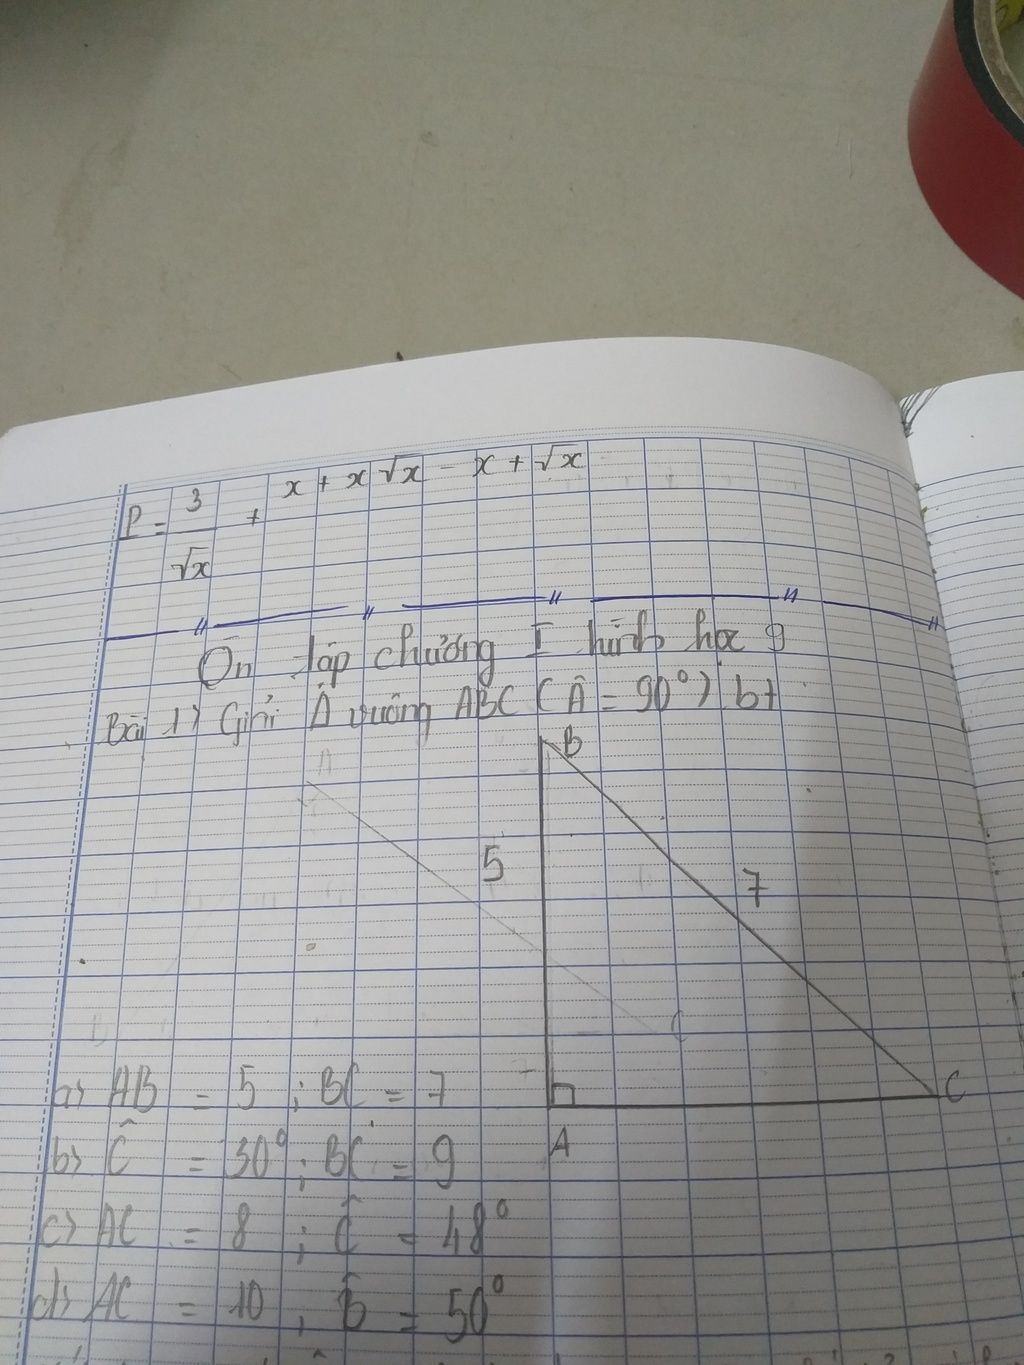 P = 3/√x + x + x√x - x + √x
Ôn tập chương I hình học 9
Bài 1) Giải Δ vuông ABC (Â = 90°) bt
A
B
5
7
C
C
A
a) AB = 5 ; BC = 7
b) Ĉ = 30° ; BC = 9
c) AC = 8 ; Ĉ = 48°
d) AC = 10 ; B̂ = 50°